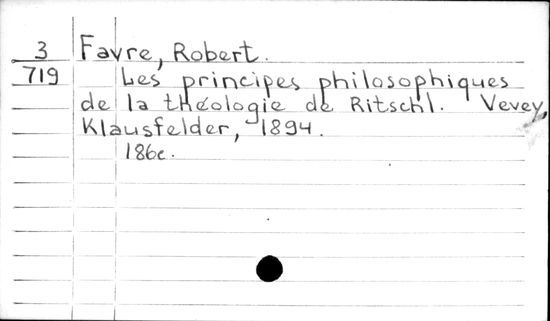 3 Favre, Robert.
719 Les principes philosophiques
de la théologie de Ritschl. Vevey,
Klausfelder, 1894.
186c.